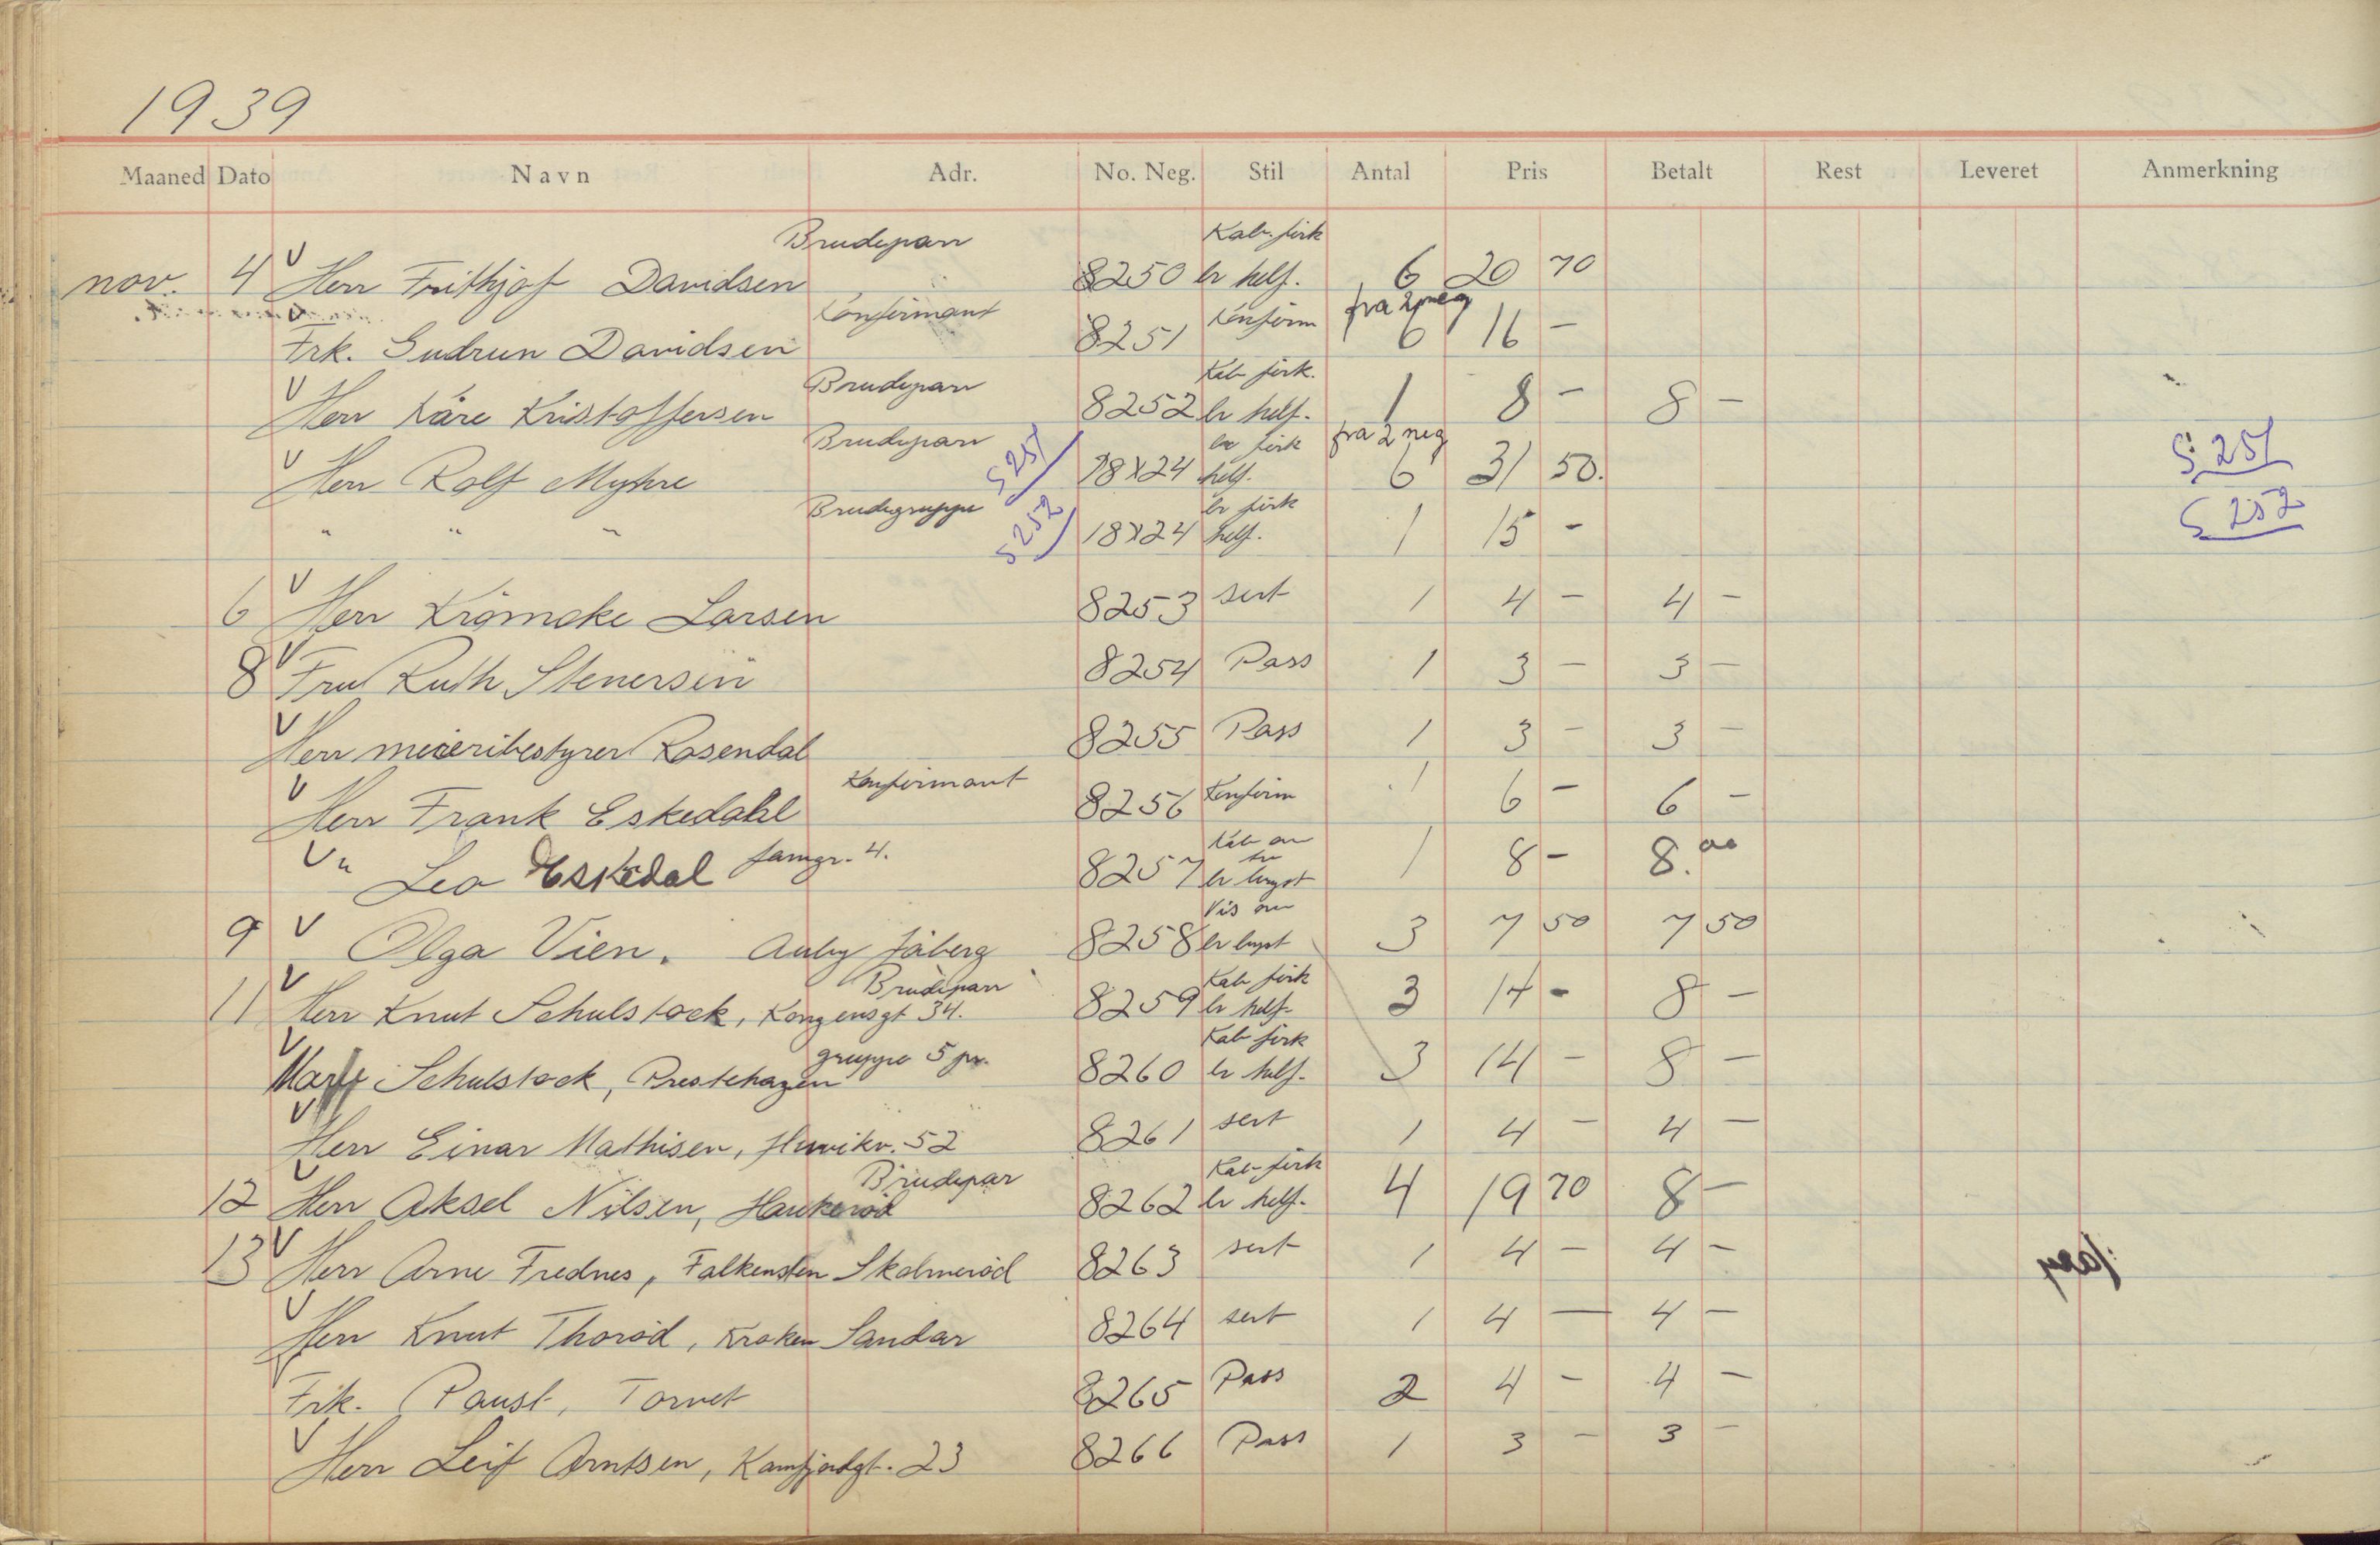 1939
Maaned Dato Navn Adr. No. Neg. Stil Antal Pris Betalt Rest Leveret Anmerkning
Brudepar Kab. firk
nov. 4 V Herr Frithjof Davidsen 8250 br helf. 6 20 70
Konfirmant Konfirm fra 2 neg
Frk. Gudrun Davidsen 8251 6 16 –
Brudepar Kab firk.
V Herr Kåre Kristoffersen 8252 br helf. 1 8 – 8 –
Brudepar S 251 br firk fra 2 neg S 251
V Herr Rolf Myhre 18X24 helf. 6 31 50.
Brudegruppe S 252 br firk S 252
" " " 18X24 helf. 1 15 –
6 V Herr Larsen 8253 sert 1 4 – 4 –
8 V Fru Ruth Stenersen 8254 Pass 1 3 – 3 –
V Herr meieribestyrer Rosendal 8255 Pass 1 3 – 3 –
Konfirmant
V Herr Frank Eskedahl 8256 Konfirm 1 6 – 6 –
famgr. 4. Kab
V " Leo Eskedal 8257 br 1 8 – 8.00
Vis
9 V Olga Vien. Auby Jåberg 8258 br 3 7 50 7 50
Brudepar Kab firk
11 V Herr Knut Schulstock, Kongensgt 34. 8259 br helf. 3 14 – 8 –
gruppe 5 pr. Kab firk
V Mary Schulstock, Prestehagen 8260 br helf. 3 14 – 8 –
V Herr Einar Mathisen, 52 8261 sert 1 4 – 4 –
Brudepar Kab firk
12 V Herr Aksel Nilsen, Haukerød 8262 br helf. 4 19 70 8 –
13 V Herr Arne Frednes, Falkensten Skolmerød 8263 sert 1 4 – 4 –
V Herr Knut Thorød, Kroken Sandar 8264 sert 1 4 – 4 –
Frk. Paust, Torvet 8265 Pass 2 4 – 4 –
V Herr Leif Arntsen, Kamfjordgt. 23 8266 Pass 1 3 – 3 –